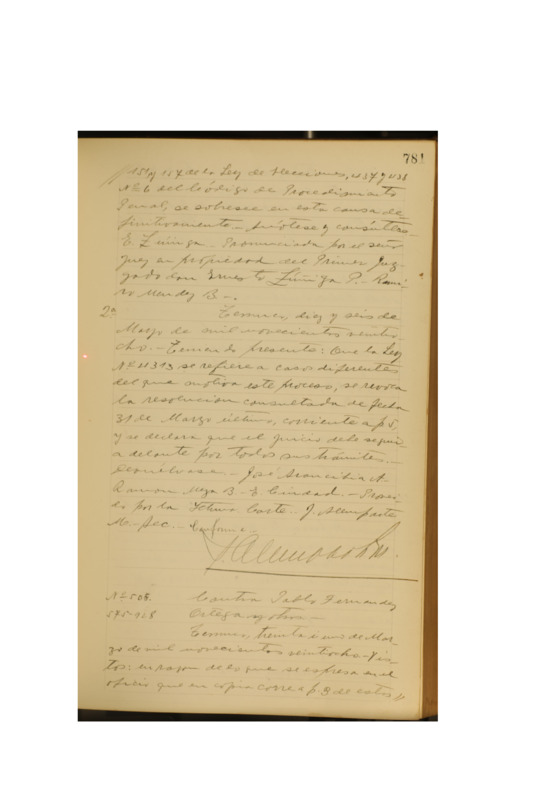 781
// 151 y 157 de la Ley de Elecciones, 437 y 438
Nº 66 del Código de Procedimientos
Penal, se sobresee en esta causa de-
finitivamente. - Nótese y consúltese.
E. Zúñiga. Pronunciada por el señor
juez en propiedad del Primer Juz-
gado don Ernesto Zúñiga P. Rami-
ro Mendez B -.
2ª Cosmes, diez y seis de
Mayo de mil novecientos veintio
cho. - Teniendo presente: Que la Ley
Nº 11313 se refiere a casos diferentes
del que motiva este proceso, se revoca
la resolución consultada de fecha
31 de Marzo último, corriente a f 5,
y se declara que el juicio debe seguir
adelante por todos sus trámites. -
Devuélvase. - José
Ramon Meza B - E Ciudad. - Provei-
do por la Iltma Corte. - J.
M. - Sec. - Conforme.
Nº 508. Contra Pablo Fernandez
575-928 Ortega y otros -
treinta i uno de Mar-
zo de mil novecientos veintiocho - Vis-
tos: en razon de lo que se espresa en el
oficio que en copia corre a f. 3 de estos //